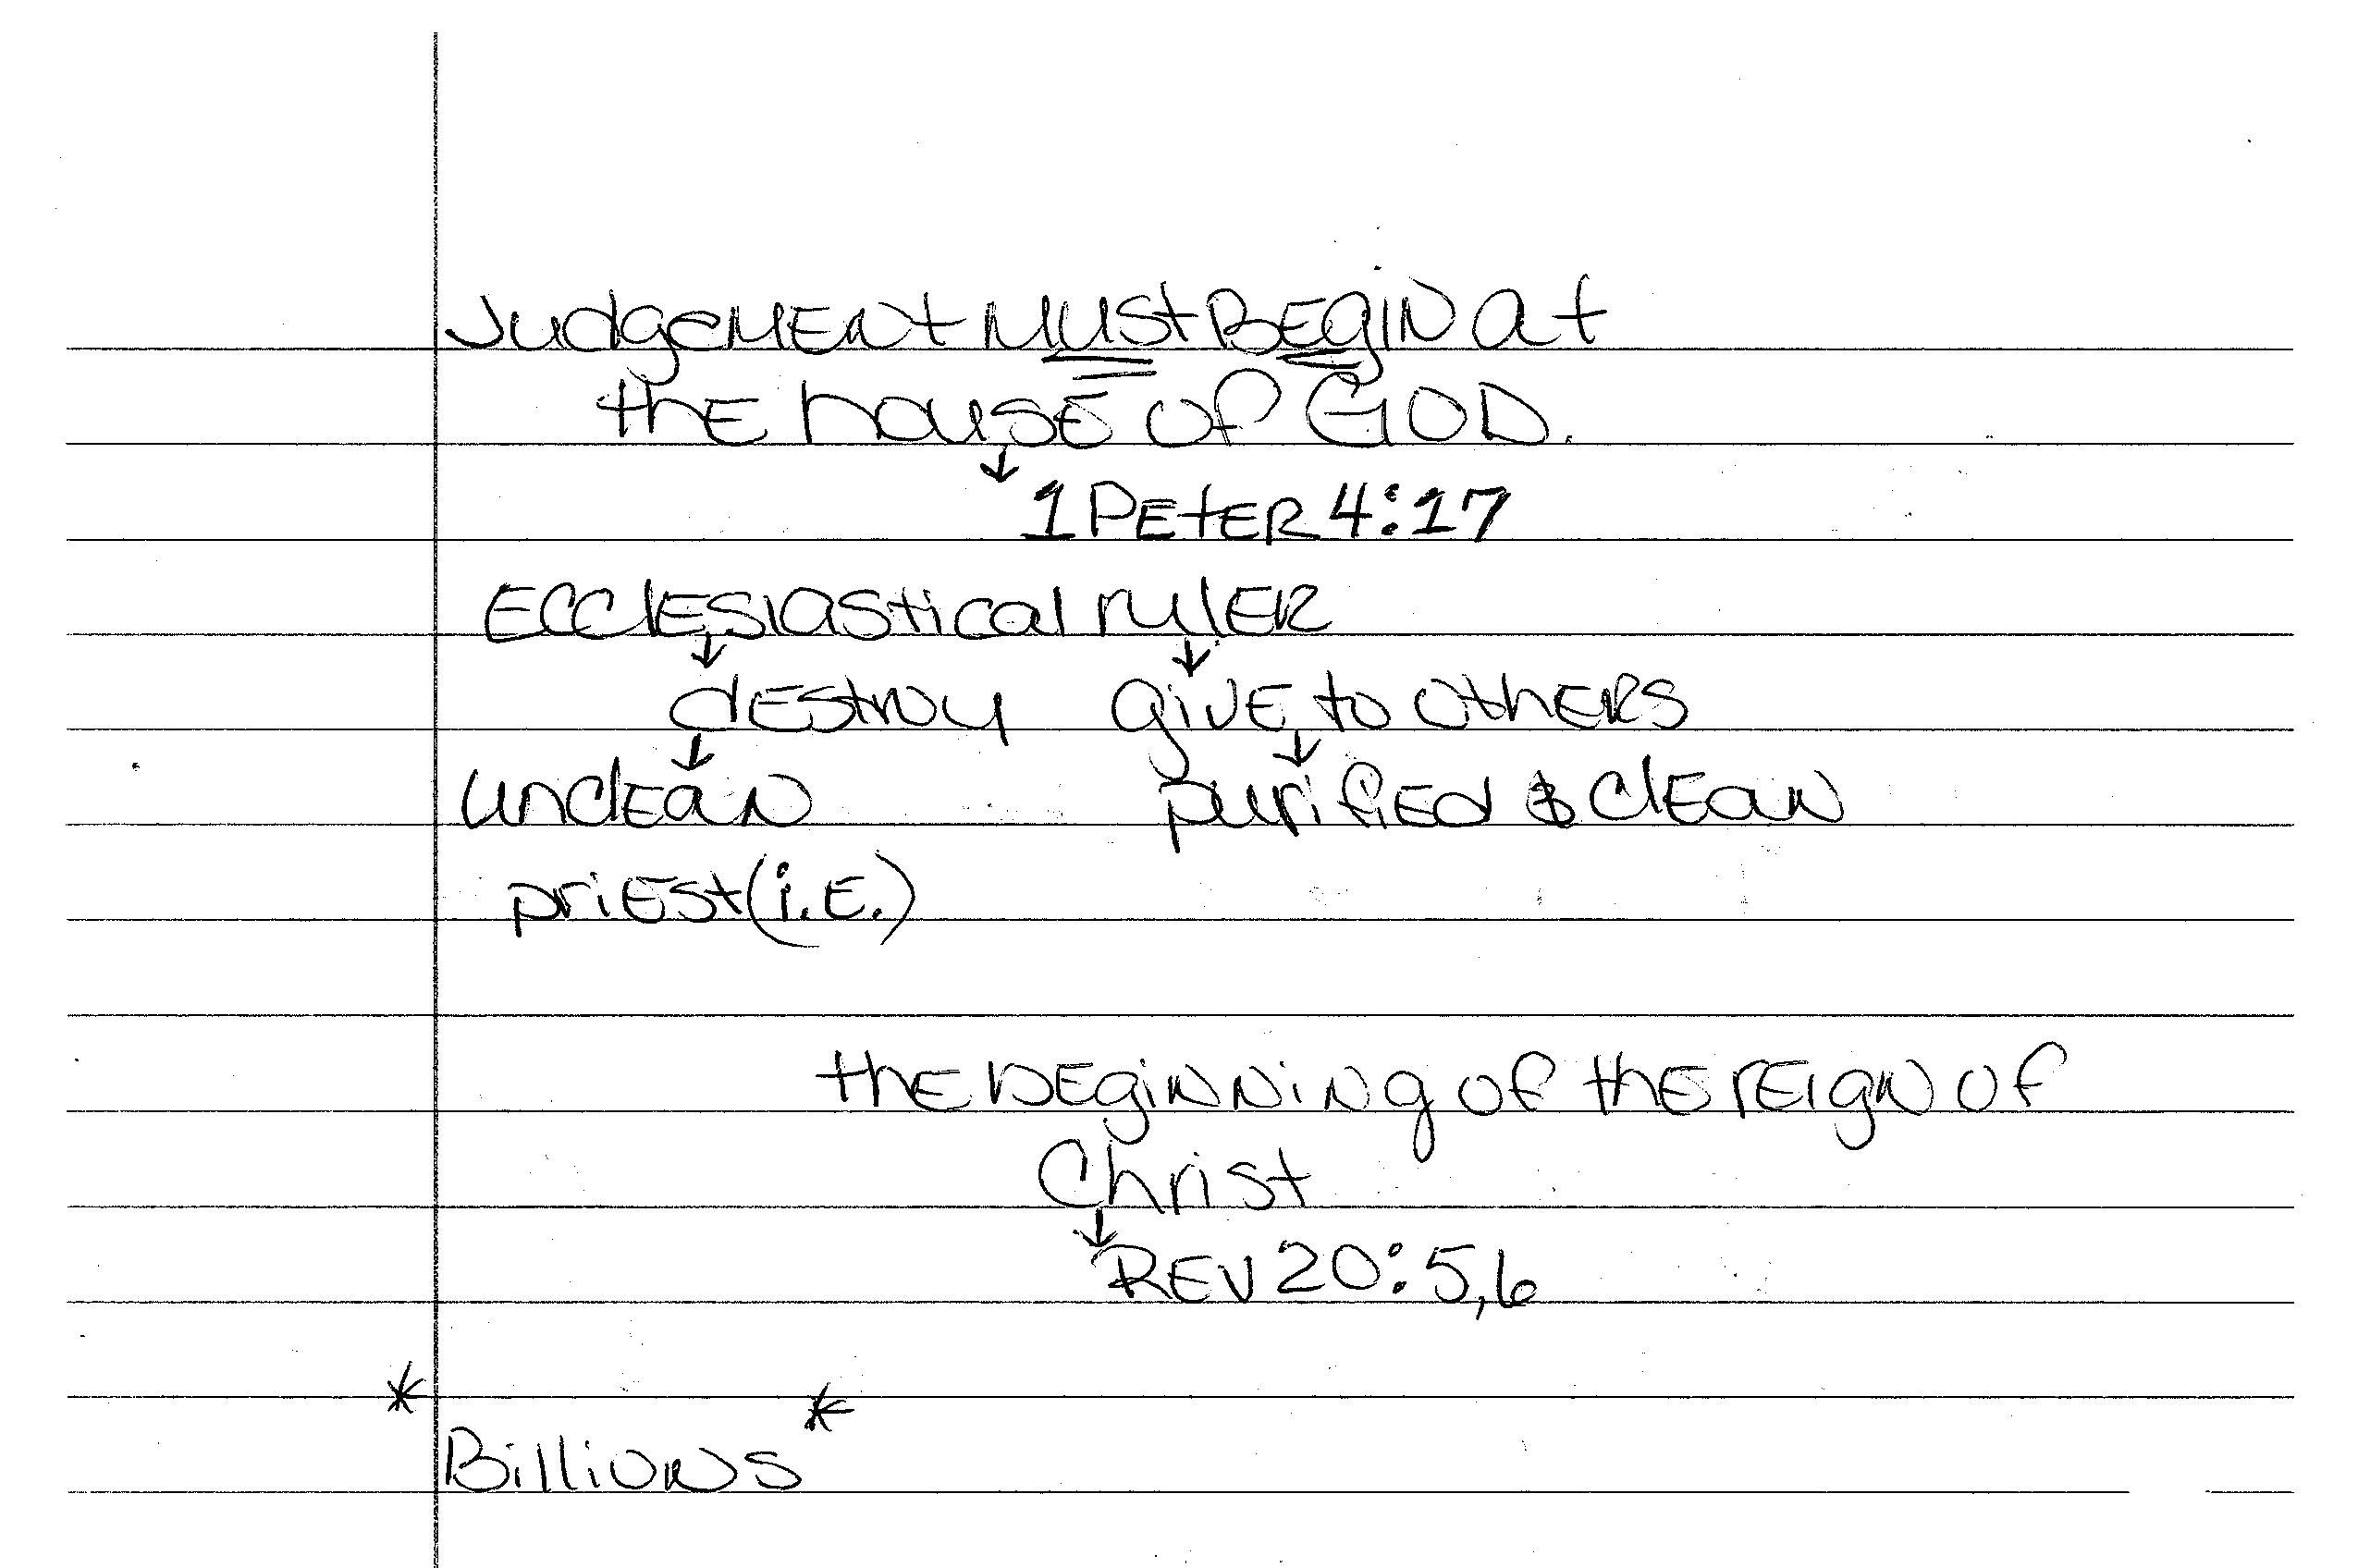 JudgeMENt MUSt BEgIN at
thE housE of GOD.
↓
1 PEtER 4:17
ECClESIastical rulER
↓ ↓
dEstroy givE to othERS
↓ ↓
UnclEaN purifiEd & ClEaN
priESt (i.E.)
thE bEgiNNiNg of thE rEIgN of
Christ
↓
REV 20:5,6
* *
BillioNs